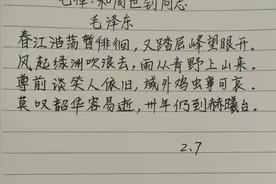 七律·和周世钊同志
毛泽东
春江浩荡暂徘徊，又踏层峰望眼开。
风起绿洲吹浪去，雨从青野上山来。
尊前谈笑人依旧，域外鸡虫事可哀。
莫叹韶华容易逝，卅年仍到赫曦台。
2.7